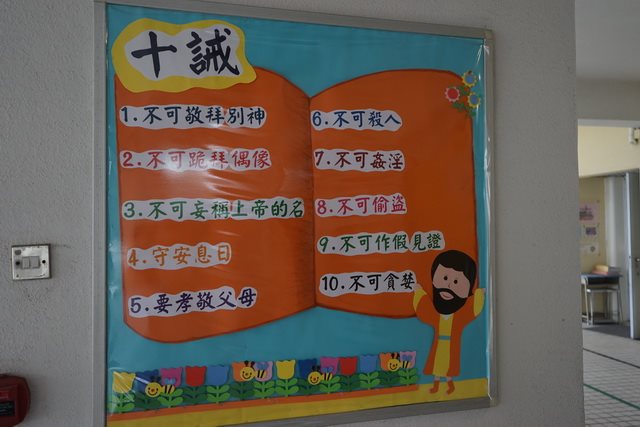 十誡
1.不可敬拜別神
2.不可跪拜偶像
3.不可妄稱上帝的名
4.守安息日
5.要孝敬父母
6.不可殺人
7.不可姦淫
8.不可偷盜
9.不可作假見證
10.不可貪婪